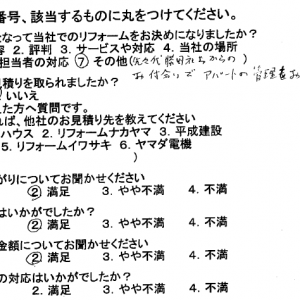 番号、該当するものに丸をつけてください。
なって当社でのリフォームをお決めになりましたか?
容 2. 評判 3. サービスや対応 4. 当社の場所
担当者の対応 ⑦ その他(先々代勝田社ちからの
お付合りで アパートの管理をお
見積りを取られましたか?
いいえ
えた方へ質問です。
れば、他社のお見積り先を教えてください
ハウス 2. リフォームナカヤマ 3. 平成建設
5. リフォームイワサキ 6. ヤマダ電機
)
がりについてお聞かせください
② 満足 3. やや不満 4. 不満
はいかがでしたか?
② 満足 3. やや不満 4. 不満
金額についてお聞かせください
② 満足 3. やや不満 4. 不満
の対応はいかがでしたか?
2. 満足 3. やや不満 4. 不満